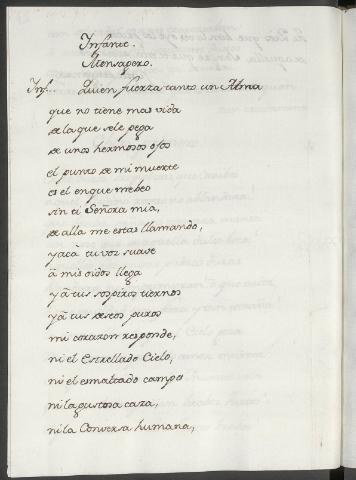 Infante.
Mensagero.
Inf... Quien fuerza tanto un Alma
que no tiene mas vida
de la que sele pega
de unos hermosos ojos
el punto de mi muerte
es el enque mebeo
sin ti Señora mia,
de alla me estas llamando,
yacà tu voz suave
à mis oidos llega
yà tus sospiros tiernos
yà tus deseos puros
mi corazon responde,
ni el Estrellado Cielo,
ni el esmaltado campo
ni la gustosa caza,
ni la Conversa humana,